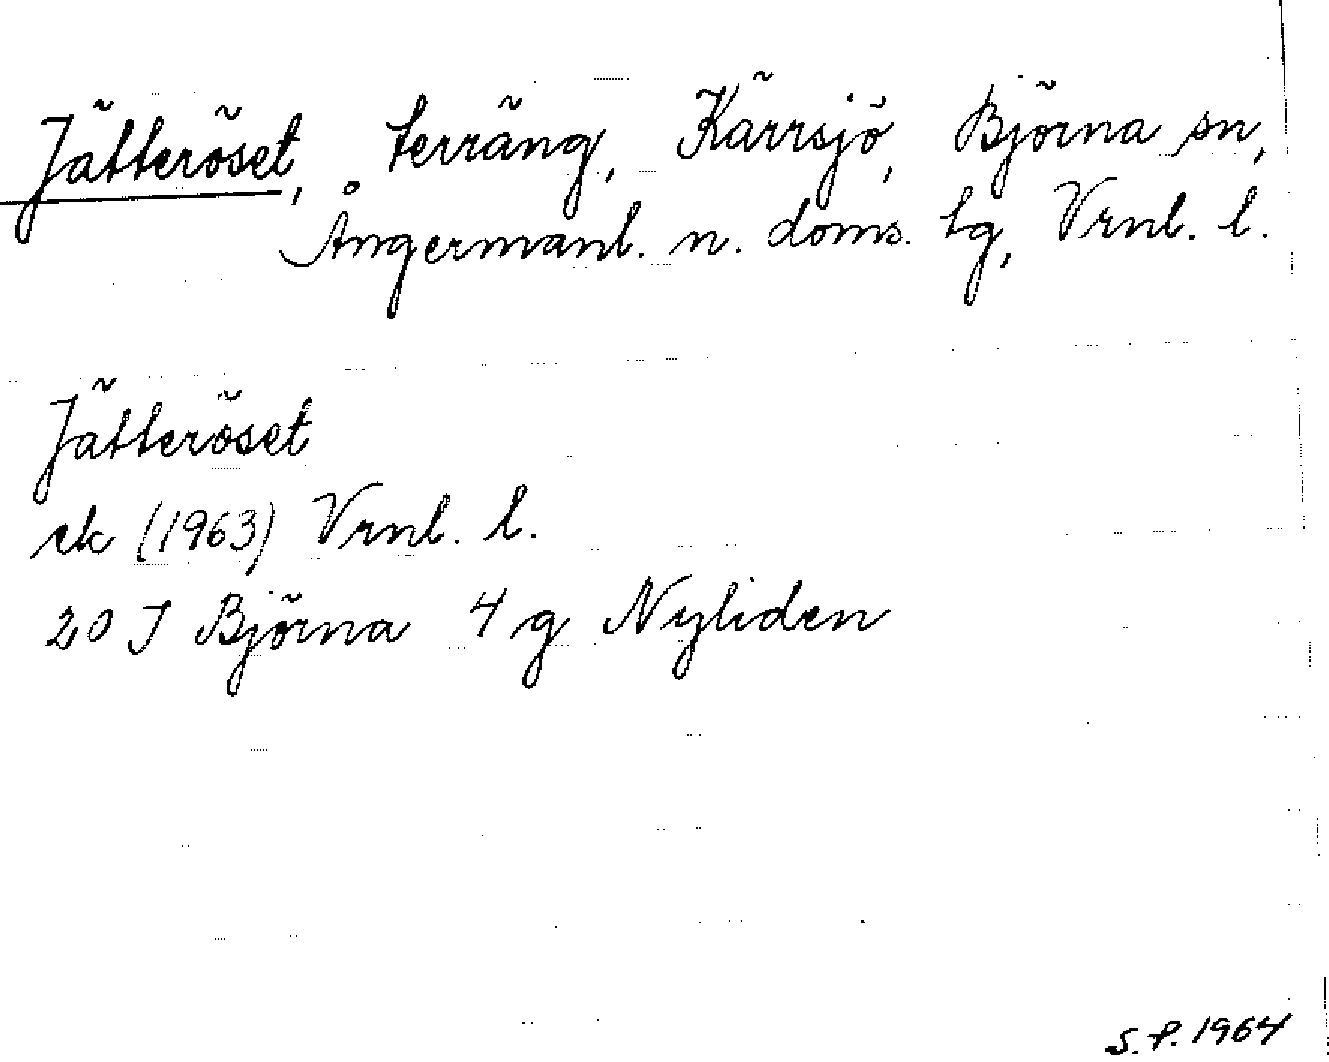 Jätteröset, terräng, Kärrsjö, Björna sn,
Ångermanl. n. doms. lg, Vrnl. l.
Jätteröset
ek (1963) Vrnl. l.
20 J Björna 4 g Nyliden
S. P. 1964